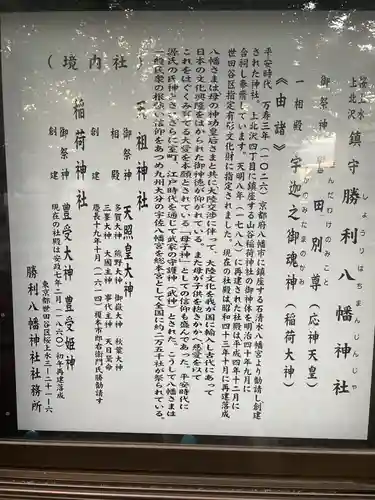 桜上水
上北沢
鎮守 勝利八幡神社
しょうりはちまんじんじゃ
御祭神
品田別尊（応神天皇）
ほんだわけのみこと
一相殿
宇迦之御魂神（稲荷大神）
うかのみたまのかみ
《由緒》
平安時代 万寿三年（一〇二六）京都府八幡市に鎮座する石清水八幡宮より勧請し創建
された神社。上北沢四丁目に鎮座する山谷稲荷神社の御神体を明治四十年九月に
合祠し奉斎しています。天明八年（一七八八）に再建された社殿は平成四年十二月に
世田谷区指定有形文化財に指定されました。現在の社殿は昭和四十三年十月に再建落成
八幡さまは母の神功皇后さまと共に大陸交渉に伴って、大陸文化を我が国に輸入した代にあって
日本の文化興隆をはかられた御神徳が仰がれている。また母が子供を抱きかかえ慈愛を以て
これをはぐくみ育てる大愛を本願とされている「母子神」としての信仰も盛んであった。平安時代に
源氏の氏神とされ、さらに室町、江戸時代を通じて武家の守護神（武神）とされた。こうして八幡さまは
一般民衆の根強い信仰をあつめ九州大分の宇佐八幡宮を総本宮として全国に約二万五千社が祭られている。
（境内社）
天祖神社
御祭神 天照皇大神
相殿 多賀大神 熊野大神 御嶽大神 秋葉大神
三峯大神 大國主神 事代主神 天日鷲命
創建 慶長十九年十月（一六一四）榎本平四郎右衛門氏勝勧請す
稲荷神社
御祭神 豊受大神 豊受姫神
創建 現在の社殿は安政七年二月（一八六〇）初午再建落成
東京都世田谷区桜上水三-二十一-六
勝利八幡神社社務所